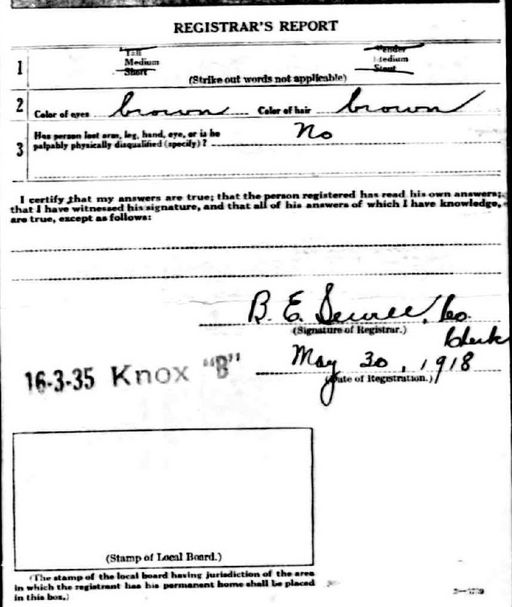 REGISTRAR'S REPORT
1
Tall
Medium
Short
Slender
Medium
Stout
(Strike out words not applicable)
2 Color of eyes brown Color of hair brown
3 Has person lost arm, leg, hand, eye, or is he
palpably physically disqualified (specify)? No
I certify that my answers are true; that the person registered has read his own answers;
that I have witnessed his signature, and that all of his answers of which I have knowledge,
are true, except as follows:
B. E. Co.
(Signature of Registrar.) Clerk
16-3-35 Knox "B"
May 30, 1918
(Date of Registration.)
(Stamp of Local Board.)
(The stamp of the local board having jurisdiction of the area
in which the registrant has his permanent home shall be placed
in this box.)